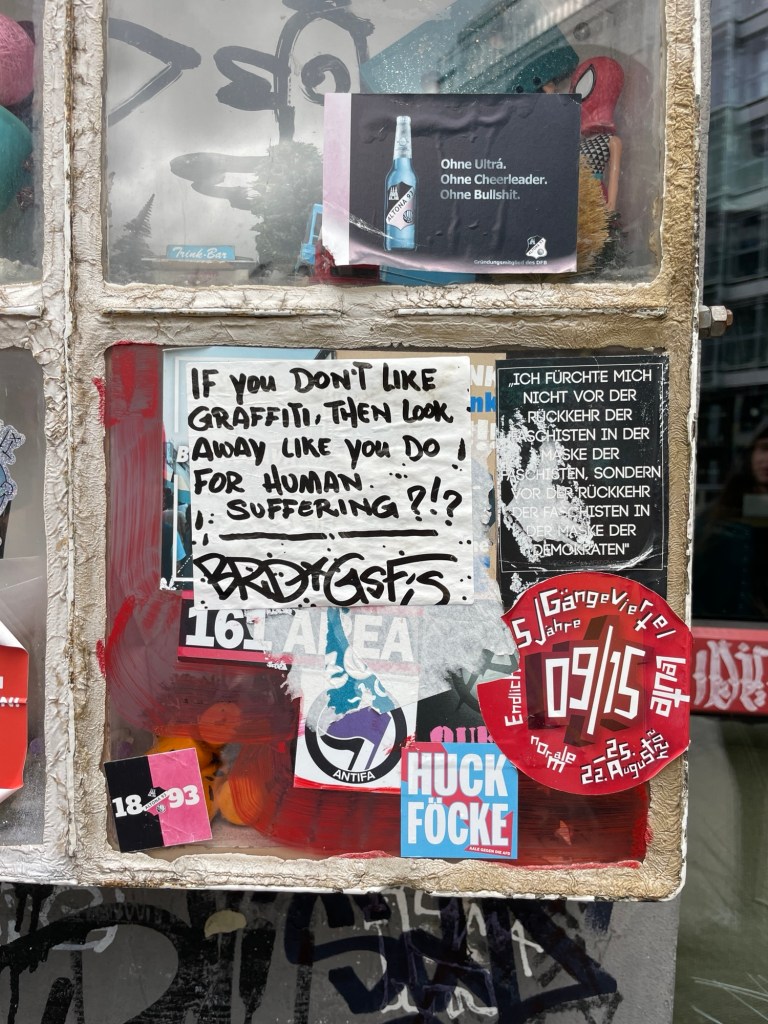 Ohne Ultrá.
Ohne Cheerleader.
Ohne Bullshit.
ALTONA 93
Gründungsmitglied des DFB
Trink-Bar
IF you DON'T LIKE
GRAFFITI, THEN LOOK
AWAY LIKE you DO
FOR HUMAN
SUFFERING ?!?
BRD+GSF,S
„ICH FÜRCHTE MICH
NICHT VOR DER
RÜCKKEHR DER
FASCHISTEN IN DER
MASKE DER
FASCHISTEN, SONDERN
VOR DER RÜCKKEHR
DER FASCHISTEN IN
DER MASKE DER
DEMOKRATEN"
161 AREA
ANTIFA
15 Jahre Gängeviertel
Endlich normale Leute
09/15
22.–25. August 2024
HUCK
FÖCKE
18 93
ALTONA 93